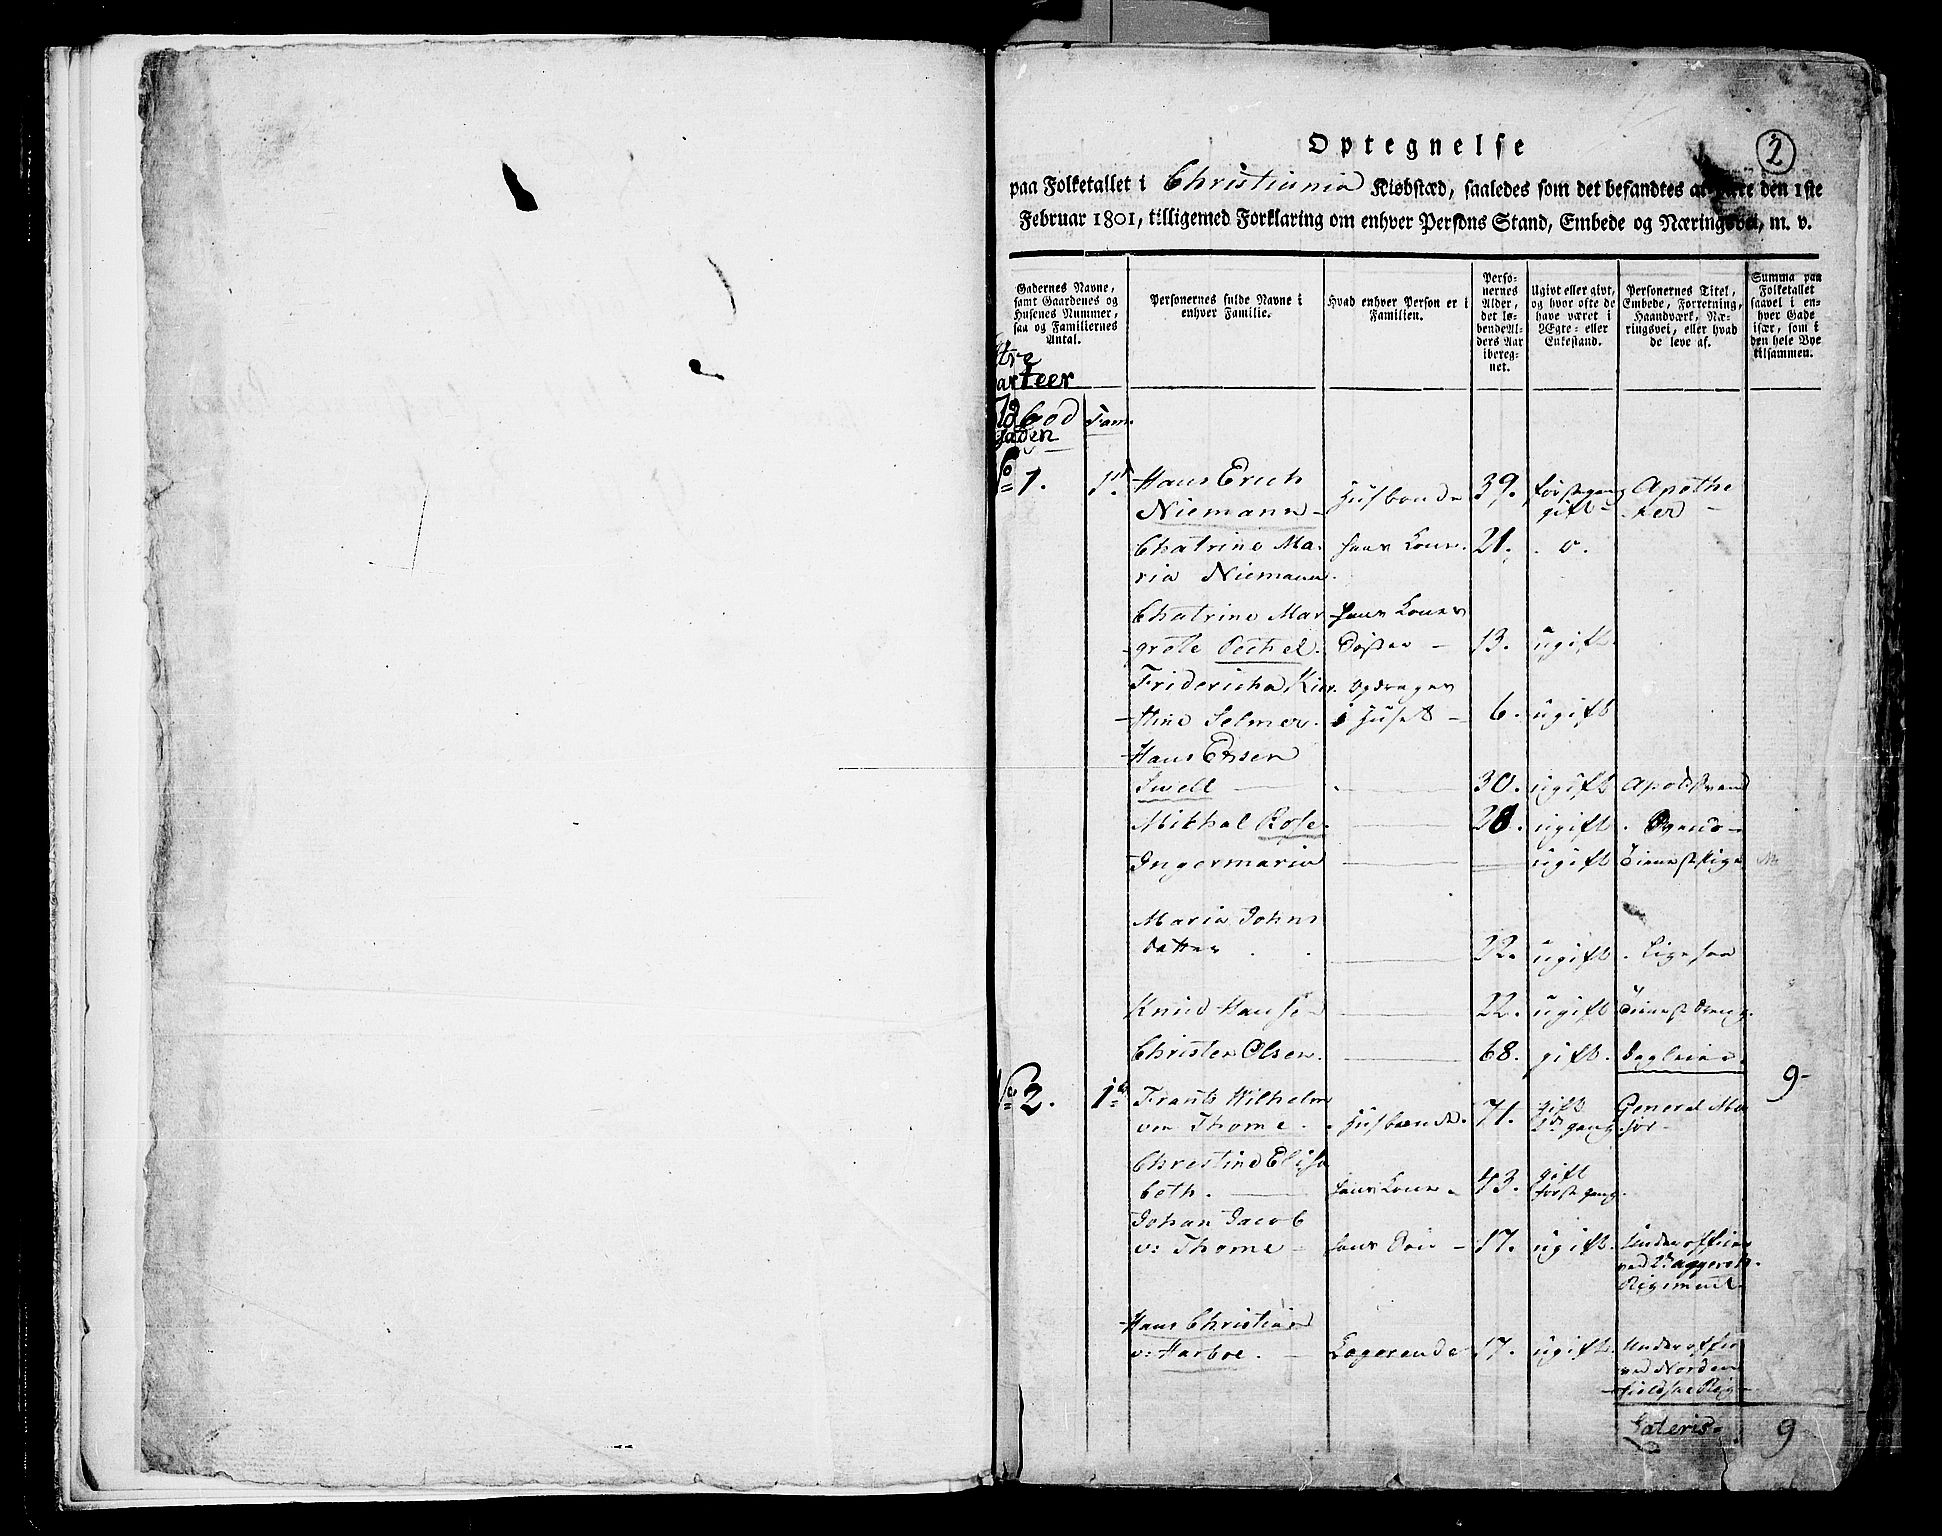 2
Optegnelse
paa Folketallet i Christiania Kiøbstæd, saaledes som det befandtes at være den 1ste
Februar 1801, tilligemed Forklaring om enhver Persons Stand, Embede og Næringsvei, m. v.
Gadernes Navne,
samt Gaardenes og
Husenes Nummer,
saa og Familiernes
Antal.
Personernes fulde Navne i
enhver Familie.
Hvad enhver Person er i
Familien.
Perso-
nernes
Alder,
det lø-
bende Al-
ders Aar
ibereg-
net.
Ugivt eller givt,
og hvor ofte de
have været i
Ægte- eller
Enkestand.
Personernes Titel,
Embede, Forretning,
Haandværk, Næ-
ringsvei, eller hvad
de leve af.
Summa paa
Folketallet
saavel i en-
hver Gade
især, som i
den hele Bye
tilsammen.
arteer
bod Fam:
gaden
No 1. 1te Hans Erich
Niemann Husbonde 39. første gang gift Apothe
ker
Chatrine Ma- hans Kone 21. o.
ria Niemann.
Chatrine Mar hans Kones
grete Pechel. Søster 13. ugift
Fridericha Kir Opdrages
stine Selmer. i Huset 6. ugift
Hans Ensen
Swell 30. ugift
Mikkal Rose. 28. ugift. Svend
Ingermaria ugift Tieneste Pige
Maria Johns
datter 22. ugift. Ligesaa
Knud Hanse 22. ugift Tieneste Dreng.
Christen Olsen. 68. gift. Dagleier.
9
No 2. 1te Frants Wilhelm
von Thome. Husbonde. 71. gift 2den gang General Ma
jor
Christine Elisa
beth. hans Kone 43. gift første gang.
Johan Jacob
v: Thome hans Søn 17. ugift. Underofficier
ved 2det Aggersh.
Regiment
Hans Christian
v: Harboe. Logerende 17. ugift. Underoffic
ved Norden
fieldske Reg
Lateris 9